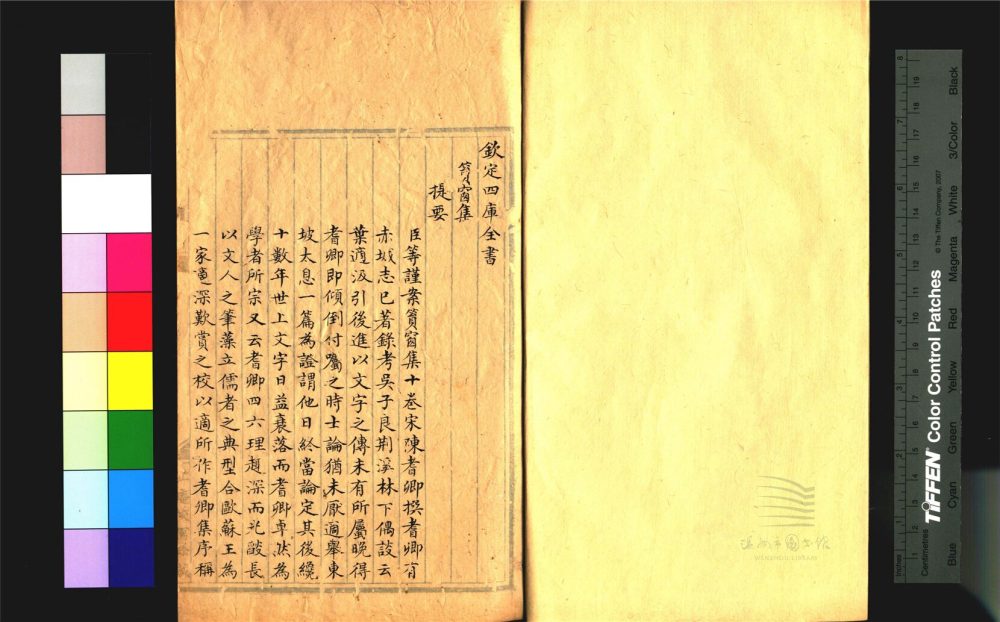 欽定四庫全書
篔窗集
提要
臣等謹案篔窗集十卷宋陳耆卿撰耆卿有
赤城志已著錄考吳子良荆溪林下偶談云
葉適汲引後進以文字之傳未有所屬晚得
耆卿即傾倒付囑之時士論猶未厭適舉東
坡太息一篇為證謂他日終當論定其後纔
十數年世上文字日益衰落而耆卿卓然為
學者所宗又云耆卿四六理趣深而光燄長
以文人之筆藻立儒者之典型合歐蘇王為
一家適深歎賞之校以適所作耆卿集序稱
温州市图书馆
WENZHOU LIBRARY
Inches
Centimetres
TIFFEN Color Control Patches
© The Tiffen Company, 2007
Blue Cyan Green Yellow Red Magenta White 3/Color Black